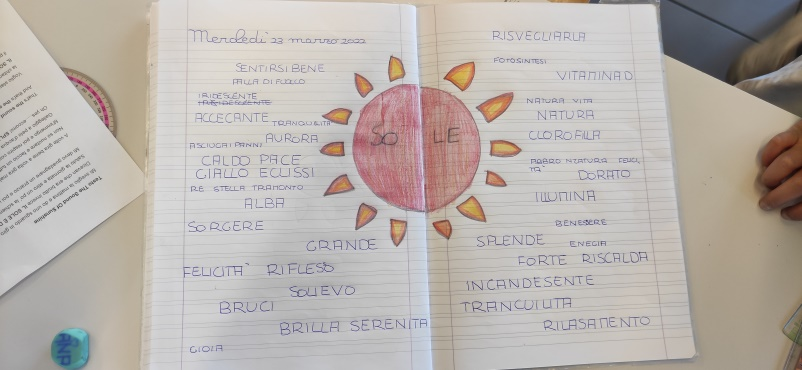 Mercoledì 23 marzo 2022
SENTIRSI BENE
PALLA DI FUOCO
IRIDESCENTE
ACCECANTE TRANQUILITÀ
AURORA
ASCIUGA I PANNI
CALDO PACE
GIALLO ECLISSI
RE STELLA TRAMONTO
ALBA
SORGERE
GRANDE
FELICITA' RIFLESSO
SOLIEVO
BRUCI
BRILLA SERENITA
GIOIA
SO LE
RISVEGLIARLA
FOTOSINTESI
VITAMINA D
NATURA VITA
NATURA
CLOROFILLA
DORATO
ILLUMINA
BENESERE
SPLENDE ENEGIA
FORTE RISCALDA
INCANDESENTE
TRANCUILITA
RILASAMENTO
Testo The Sound Of Sunshine